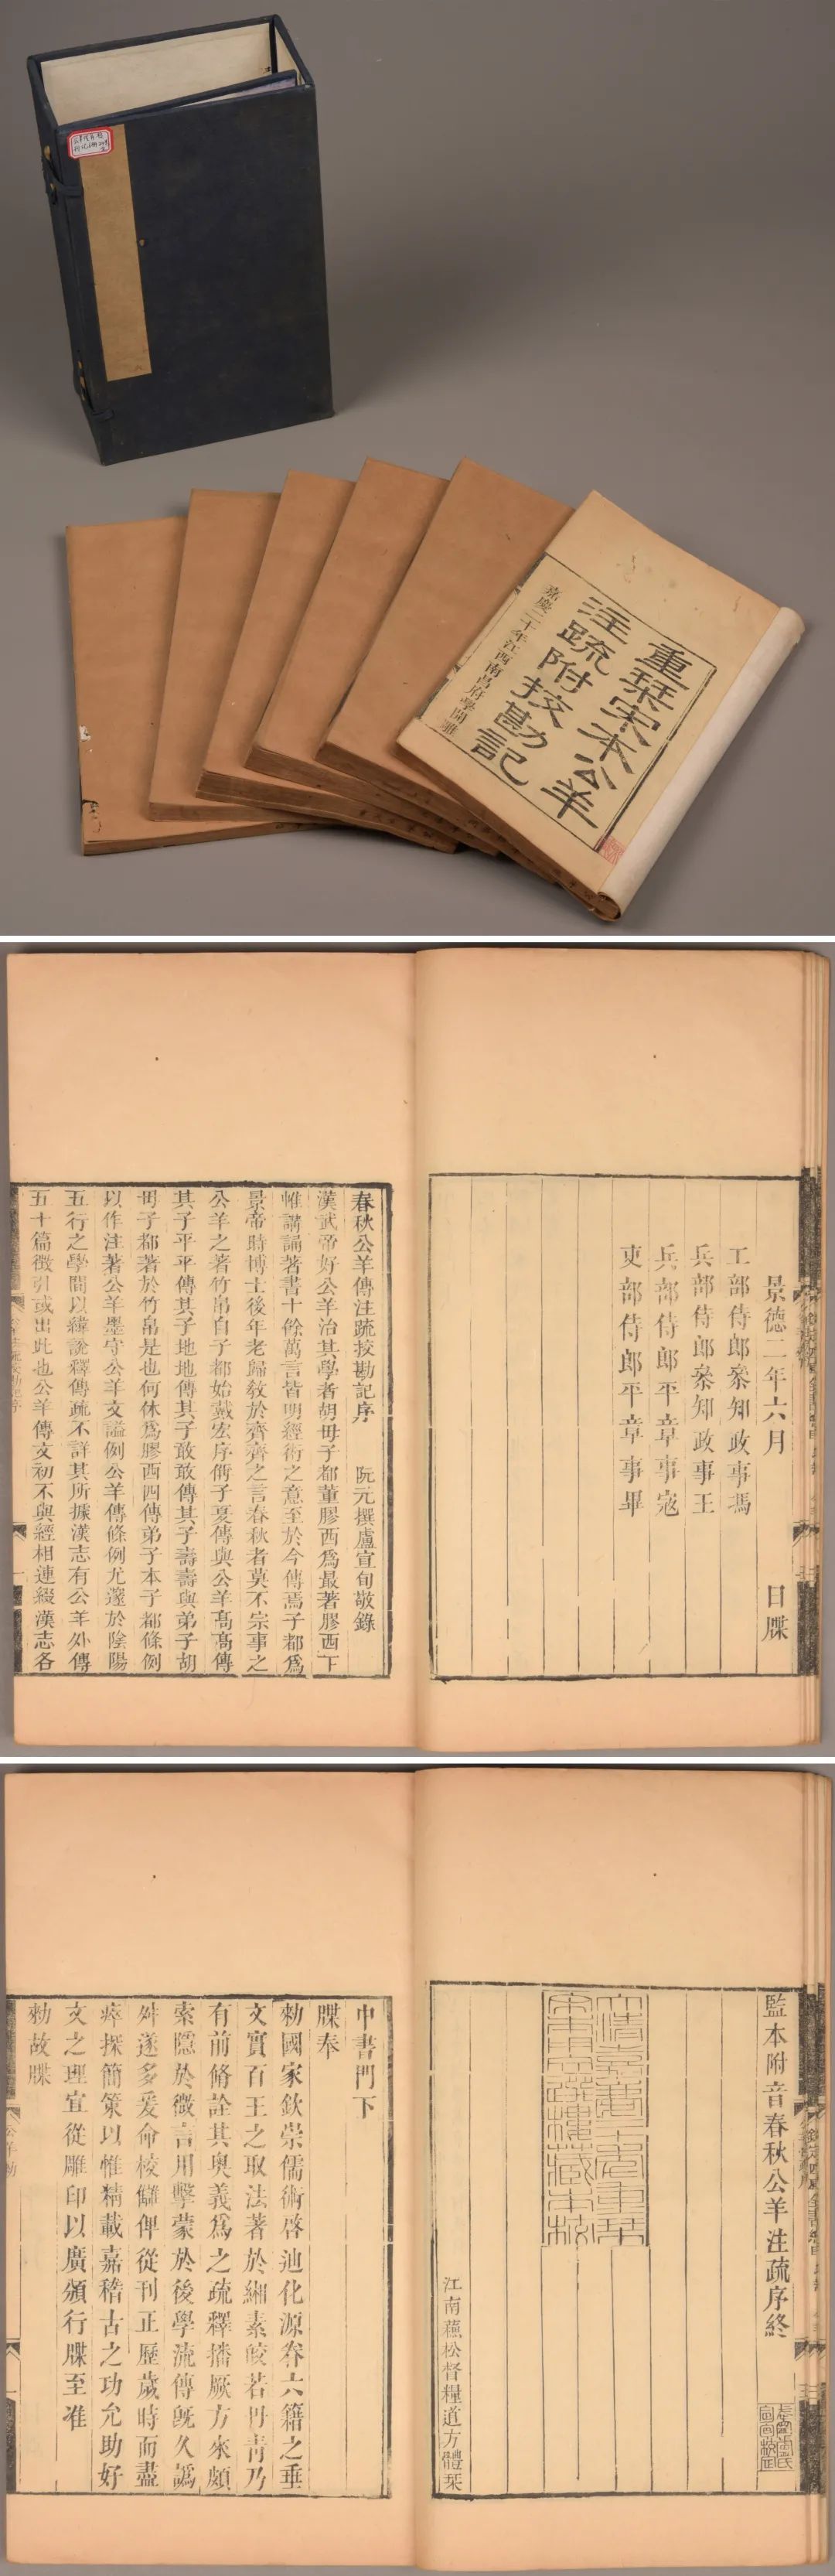 重栞宋本公羊
注疏附挍勘記
嘉慶二十年江西南昌府學開雕
景德二年六月 日牒
工部侍郎叅知政事馮
兵部侍郎叅知政事王
兵部侍郎平章事寇
吏部侍郎平章事畢
春秋公羊傳注疏挍勘記序 阮元撰盧宣旬敬錄
漢武帝好公羊治其學者胡毋子都董膠西爲最著膠西下
帷講誦著書十餘萬言皆明經術之意至於今傳焉子都爲
景帝時博士後年老歸敎於齊齊之言春秋者莫不宗事之
公羊之著竹帛自子都始戴宏序偁子夏傳與公羊高高傳
其子平平傳其子地地傳其子敢敢傳其子壽壽與弟子胡
毋子都著於竹帛是也何休爲膠西四傳弟子本子都條例
以作注著公羊墨守公羊文謚例公羊傳條例尤邃於陰陽
五行之學間以緯說釋傳疏不詳其所據漢志有公羊外傳
五十篇徵引或出此也公羊傳文初不與經相連綴漢志各
監本附音春秋公羊注疏序終
大清嘉慶二十年重栞
宋本文選樓藏本挍
江南蘇松督糧道方體栞
中書門下
牒奉
勑國家欽崇儒術啓迪化源眷六籍之垂
文實百王之取法著於緗素皎若丹青乃
有前脩詮其奧義爲之疏釋播厥方來頗
索隱於微言用擊蒙於後學流傳旣久譌
舛遂多爰命校讎俾從刊正歷歲時而盡
瘁探簡策以惟精載嘉稽古之功允助好
文之理宜從雕印以廣頒行牒至准
勑故牒